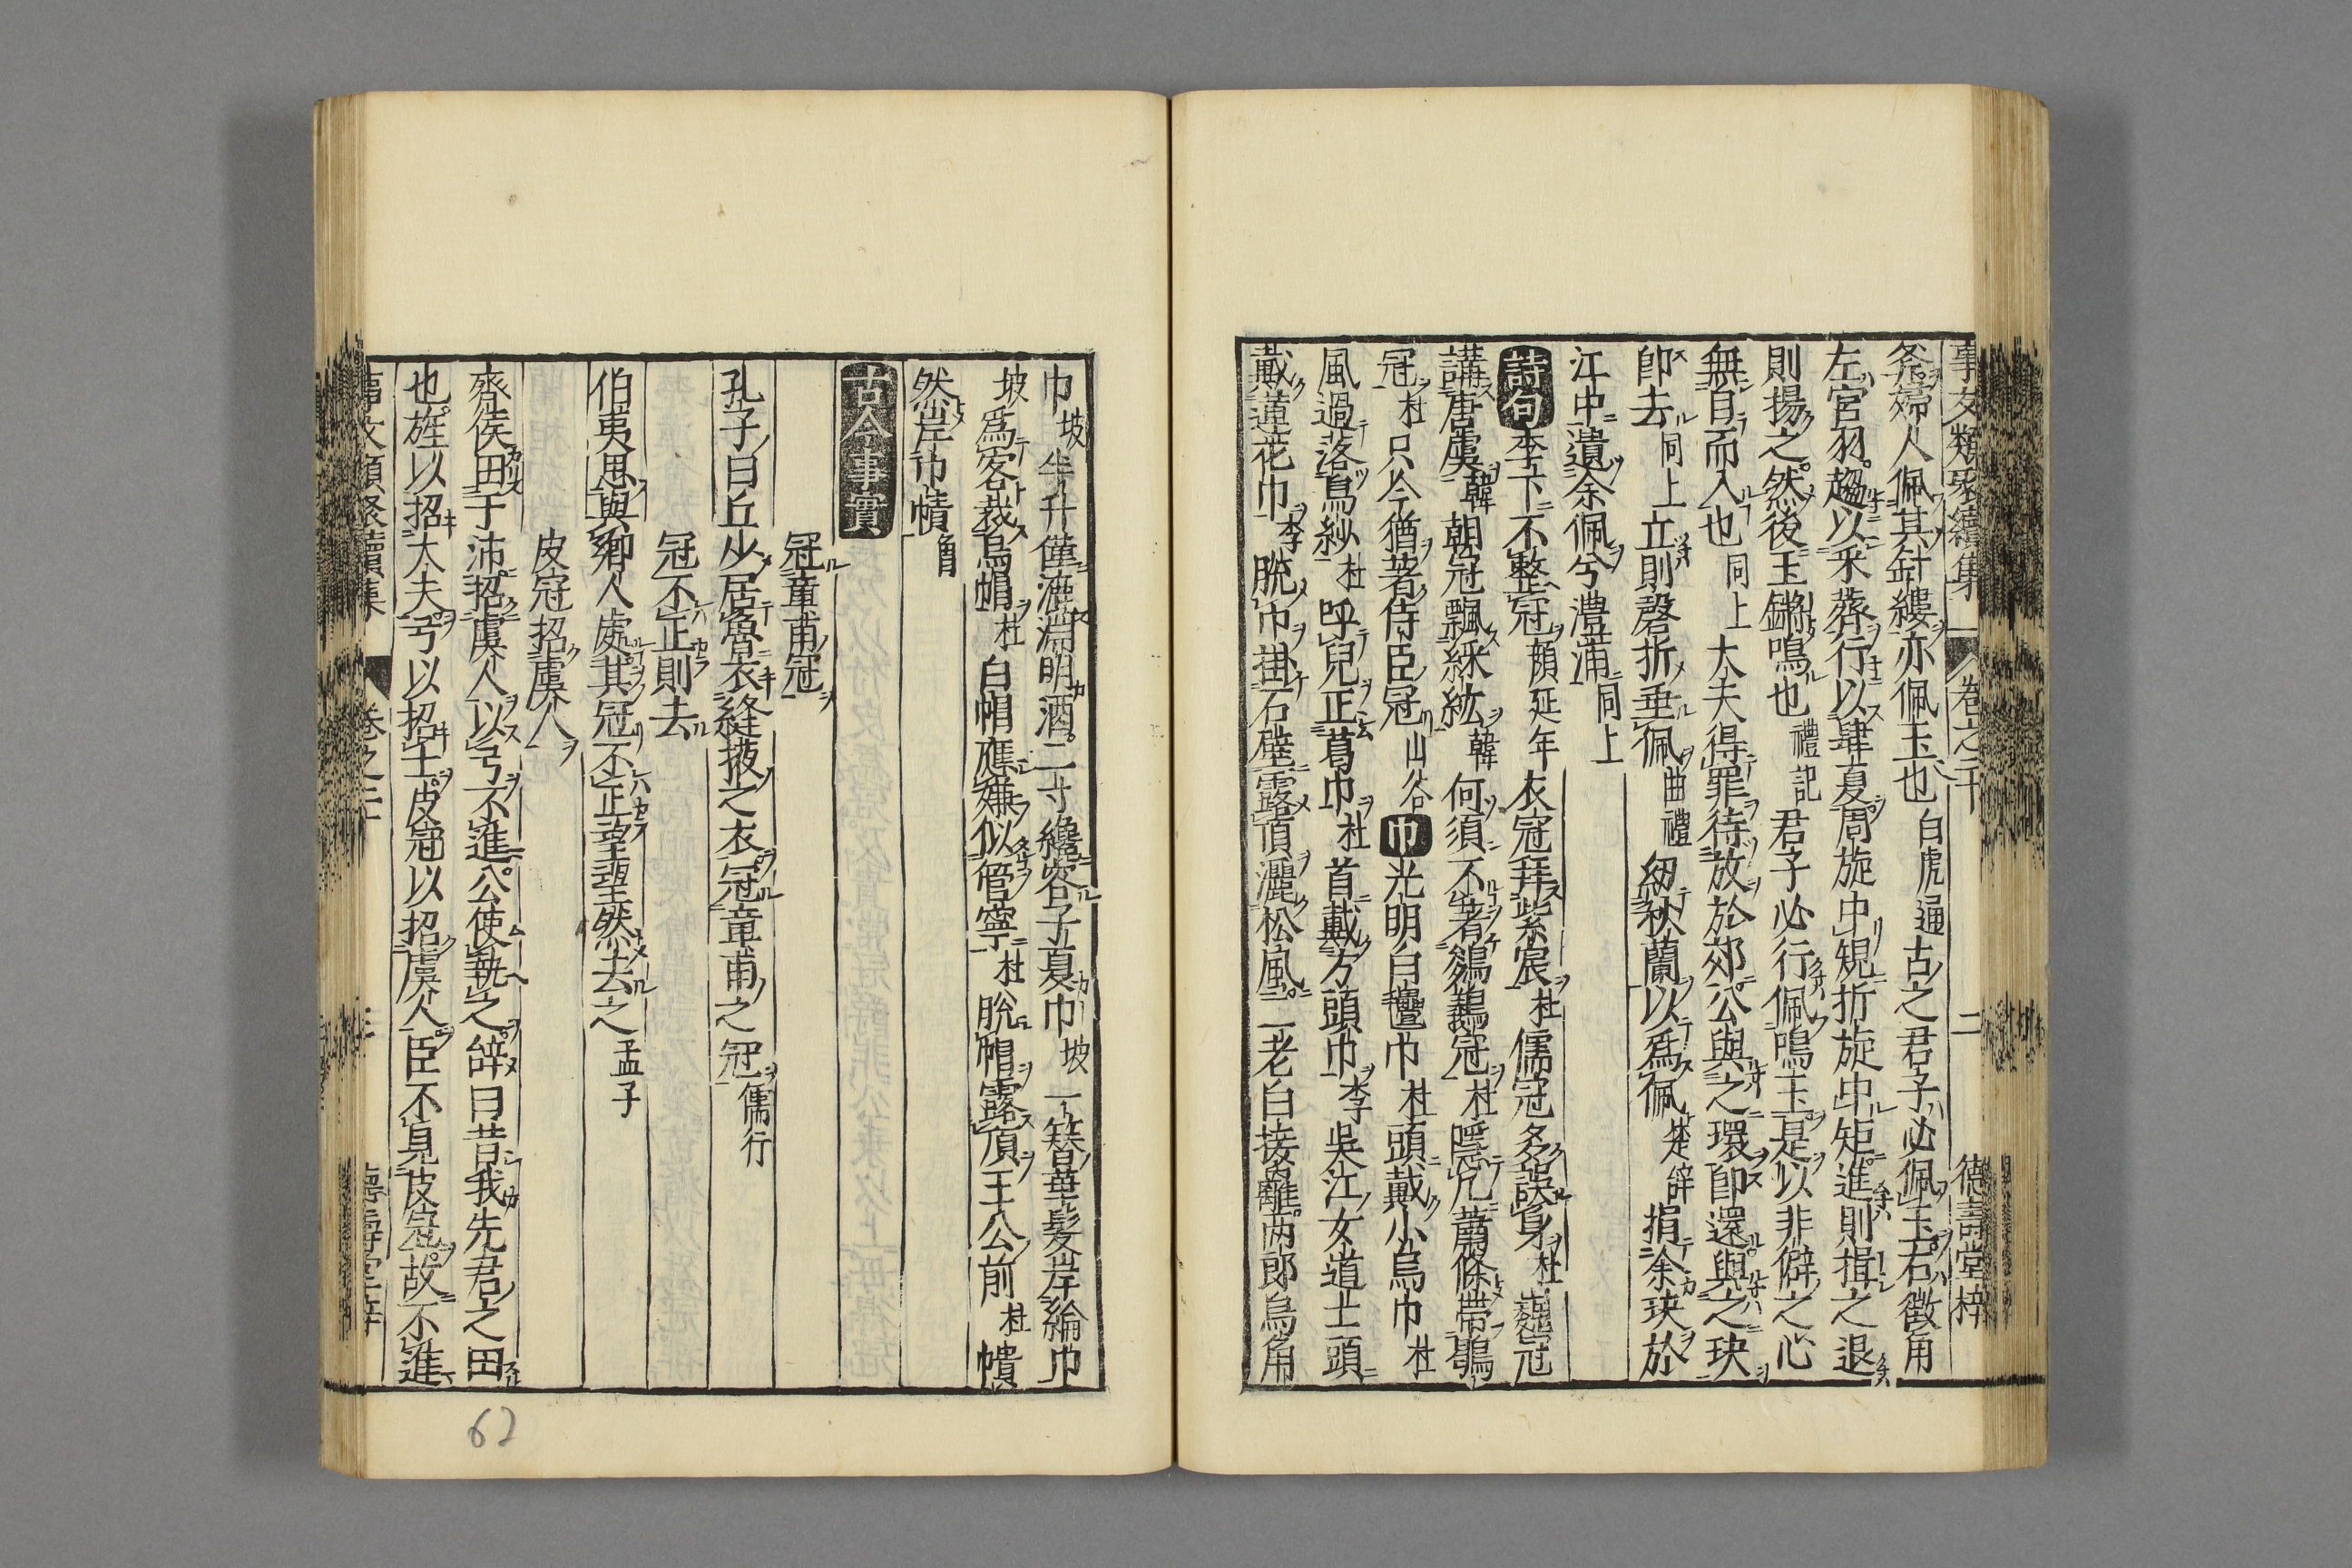 事文類聚續集 卷之二十 二 德壽堂梓
斧婦人佩其針縷亦佩玉也白虎通古之君子必佩玉右徵角
左宮羽趨以采薺行以肆夏周旋中規折旋中矩進則揖之退
則揚之然後玉鏘鳴也禮記君子必行佩鳴玉是以非僻之心
無自而入也同上大夫得罪待放於郊公與之環即還與之玦
即去同上立則磬折垂佩曲禮紉秋蘭以爲佩楚辞捐余玦於
江中遺余佩兮澧浦同上
詩句李下不整冠顔延年衣冠拜紫宸杜儒冠多誤身杜巍冠
講唐虞韓朝冠飄綵紘韓何須不著鶡冠杜隱几蕭條帶鶡
冠杜只今猶著侍臣冠山谷巾光明白氎巾杜頭戴小烏巾杜
風過落烏紗杜呼兒正葛巾杜首戴方頭巾李吳江女道士頭
戴蓮花巾李脫巾掛石壁露頂灑松風二老白接䍦两郎烏角
巾坡半升僅漉淵明酒二寸纔容子夏巾坡一簪華髮岸綸巾
坡爲客裁烏帽杜白帽應嫌似管寧杜脫帽露頂王公前杜幘
然岸巾幘
古今事實
冠章甫冠
孔子曰丘少居魯衣縫掖之衣冠章甫之冠儒行
冠不正則去
伯夷思與鄉人處其冠不正望望然去之孟子
皮冠招虞人
齊侯田于沛招虞人以弓不進公使執之辞曰昔我先君之田
也旌以招大夫弓以招士皮冠以招虞人臣不見皮冠故不進
事文類聚續集 卷之二十
62